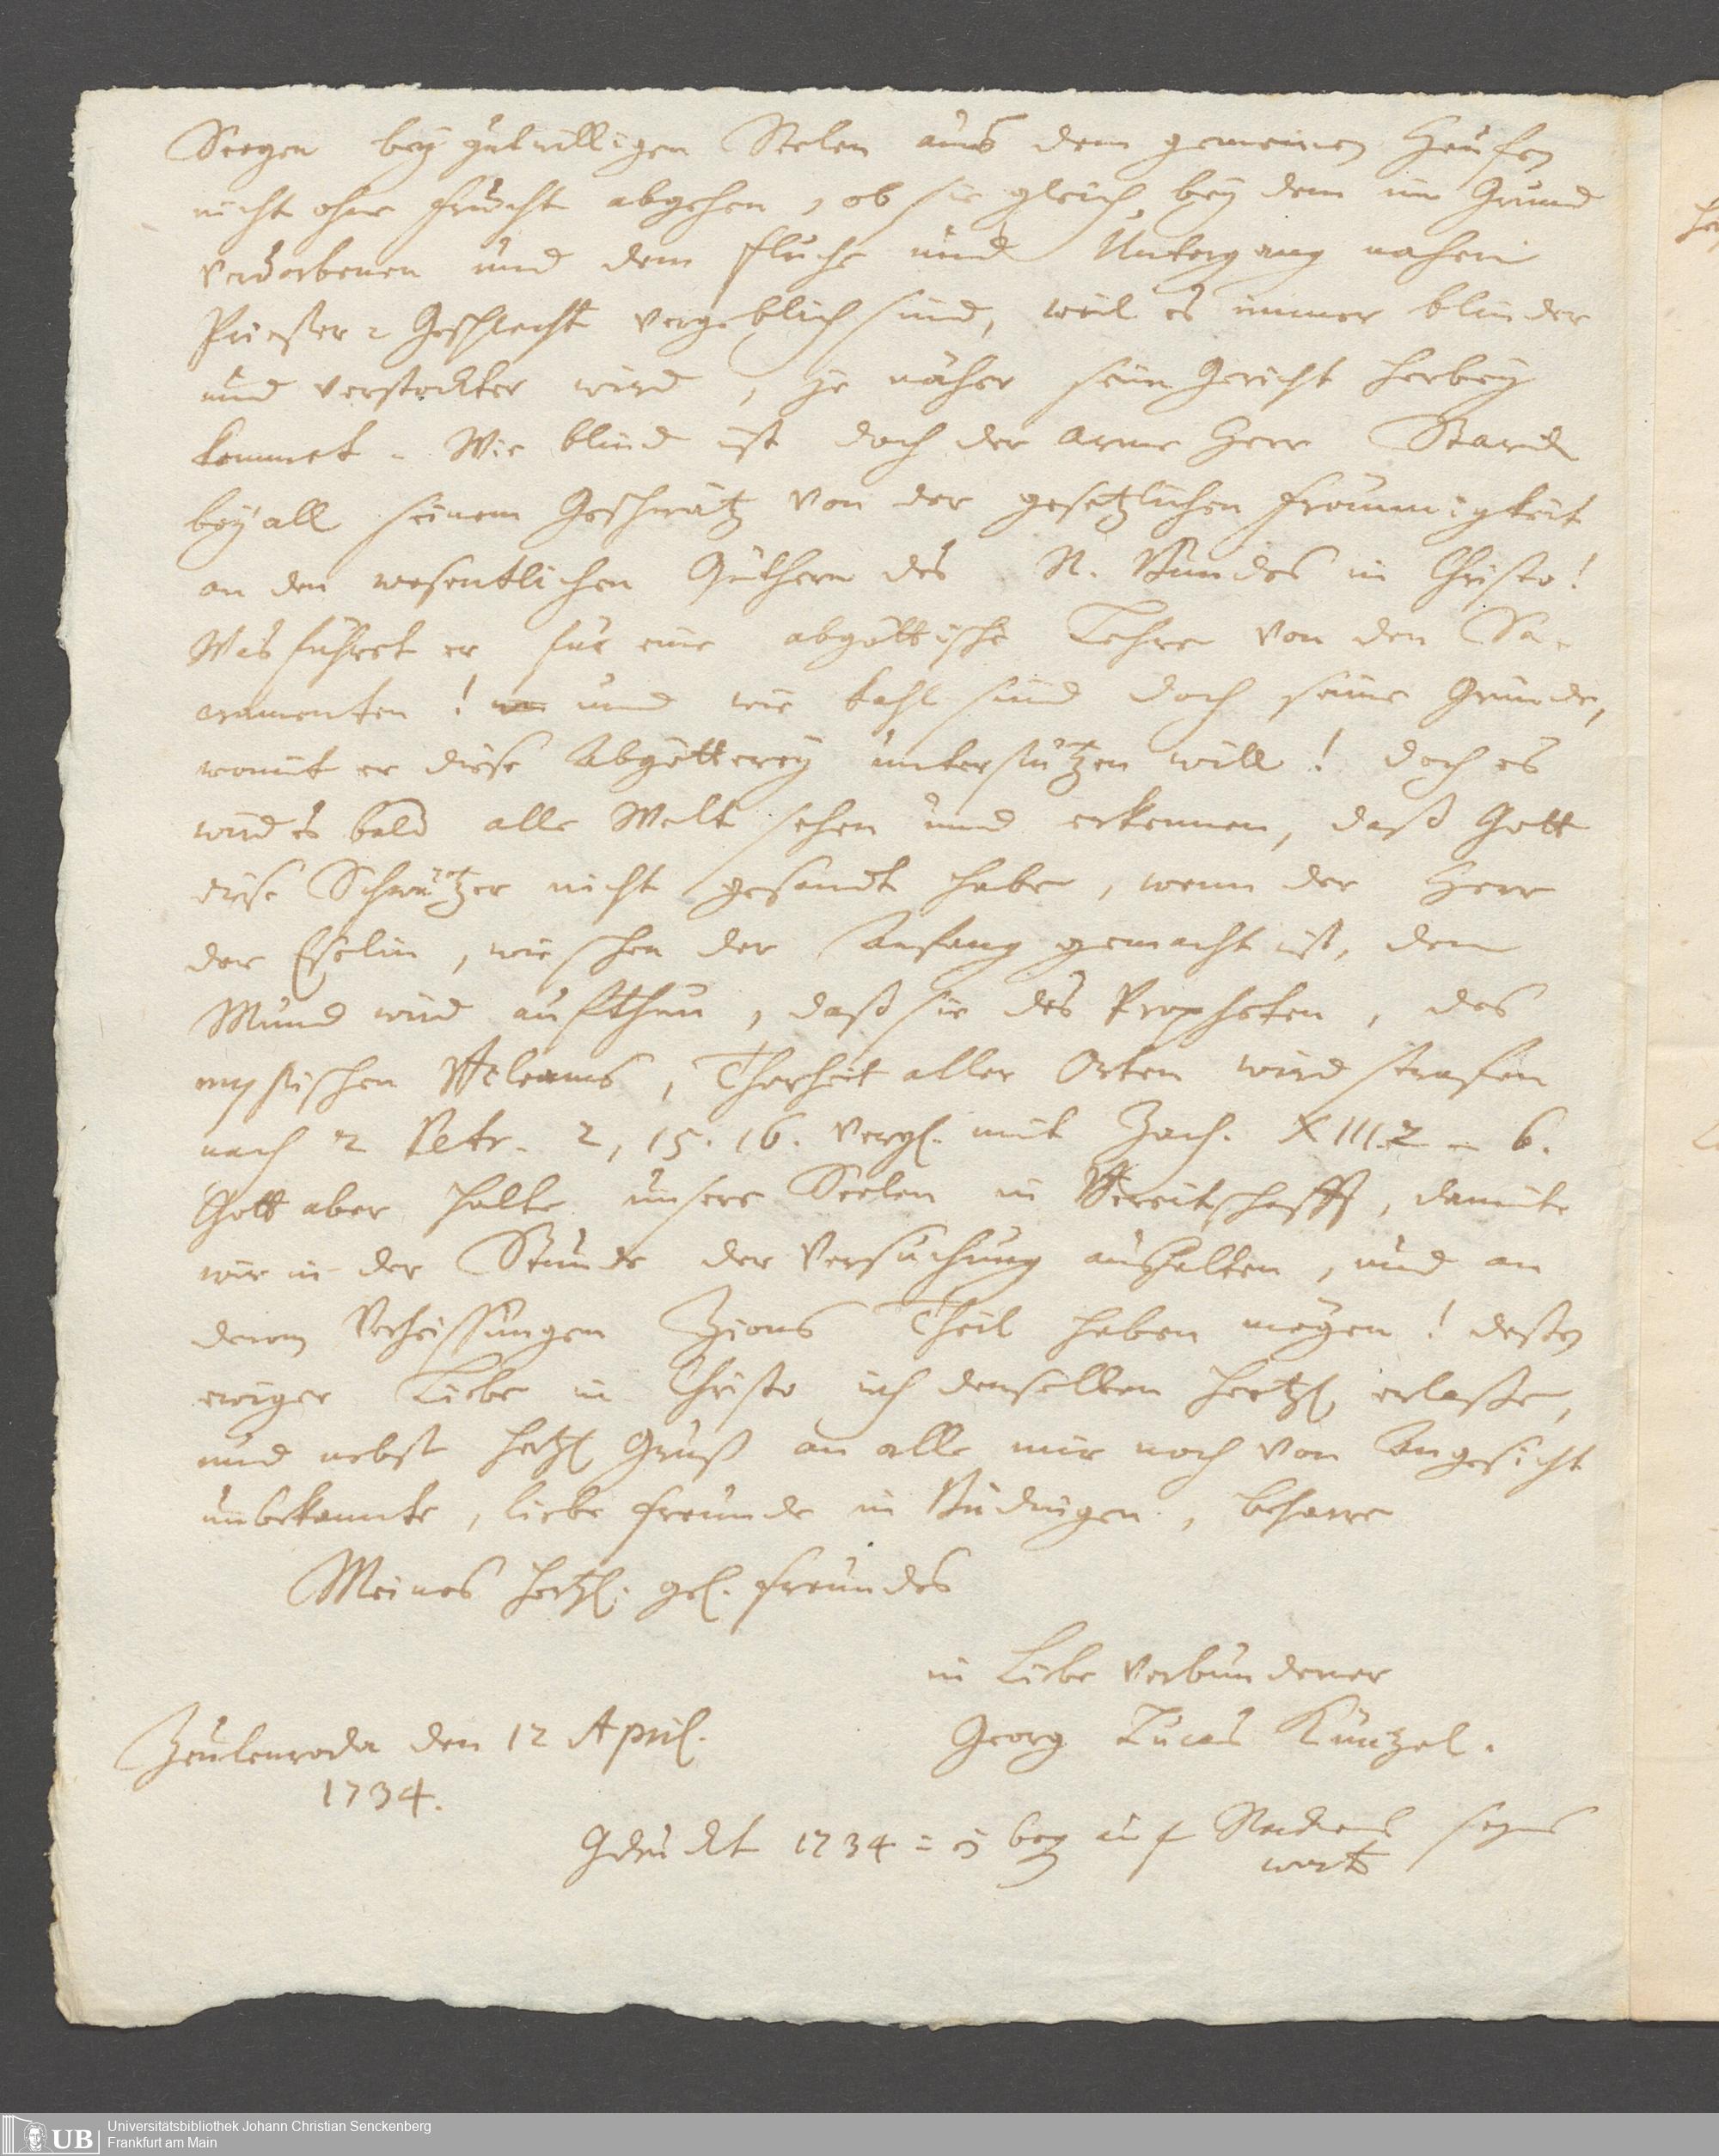 Seegen bey gutwilligen Seelen aus dem gemeinen Haufen
nicht ohne Frucht abgehen, ob sie gleich, bey dem im Grund
verdorbenen und dem Fluche und Untergang nahen
Priester-Geschlecht vergeblich sind, weil es immer blinder
und verstockter wird, je näher sein Gericht herbey
kommet. Wie blind ist doch der arme Herr Starck
bey all seinem Geschwätz von der gesetzlichen Frömmigkeit
an den wesentlichen Güthern des N. Bundes in Christo!
Was führet er für eine abgöttische Lehre von den Sa-
cramenten! und wie kahl sind doch seine Gründe,
womit er diese Abgötterey unterstützen will! doch es
wird es bald alle Welt sehen und erkennen, daß Gott
diese Schwätzer nicht gesandt habe, wenn der Herr
der Eselin, wie schon der Anfang gemacht ist, den
Mund wird aufthun, daß sie des Propheten, des
mystischen Bileams, Thorheit aller Orten wird strafen
nach 2 Petr. 2, 15. 16. vergl. mit Zach. XIII. 2 - 6.
Gott aber halte unsere Seelen in Bereitschafft, damit
wir in der Stunde der Versuchung aushalten, und an
denen Verheissungen Zions Theil haben mögen! dessen
ewiger Liebe in Christo ich denselben hertzl. erlaße,
und nebst hertzl. Gruß an alle mir noch von Angesicht
unbekannte, liebe Freunde in Büdingen, beharre
Meines hertzl. gel. Freundes
in Liebe verbundener
Zeulenroda den 12 April. Georg Lucas Küntzel.
1734.
Gdrückt 1734 bey